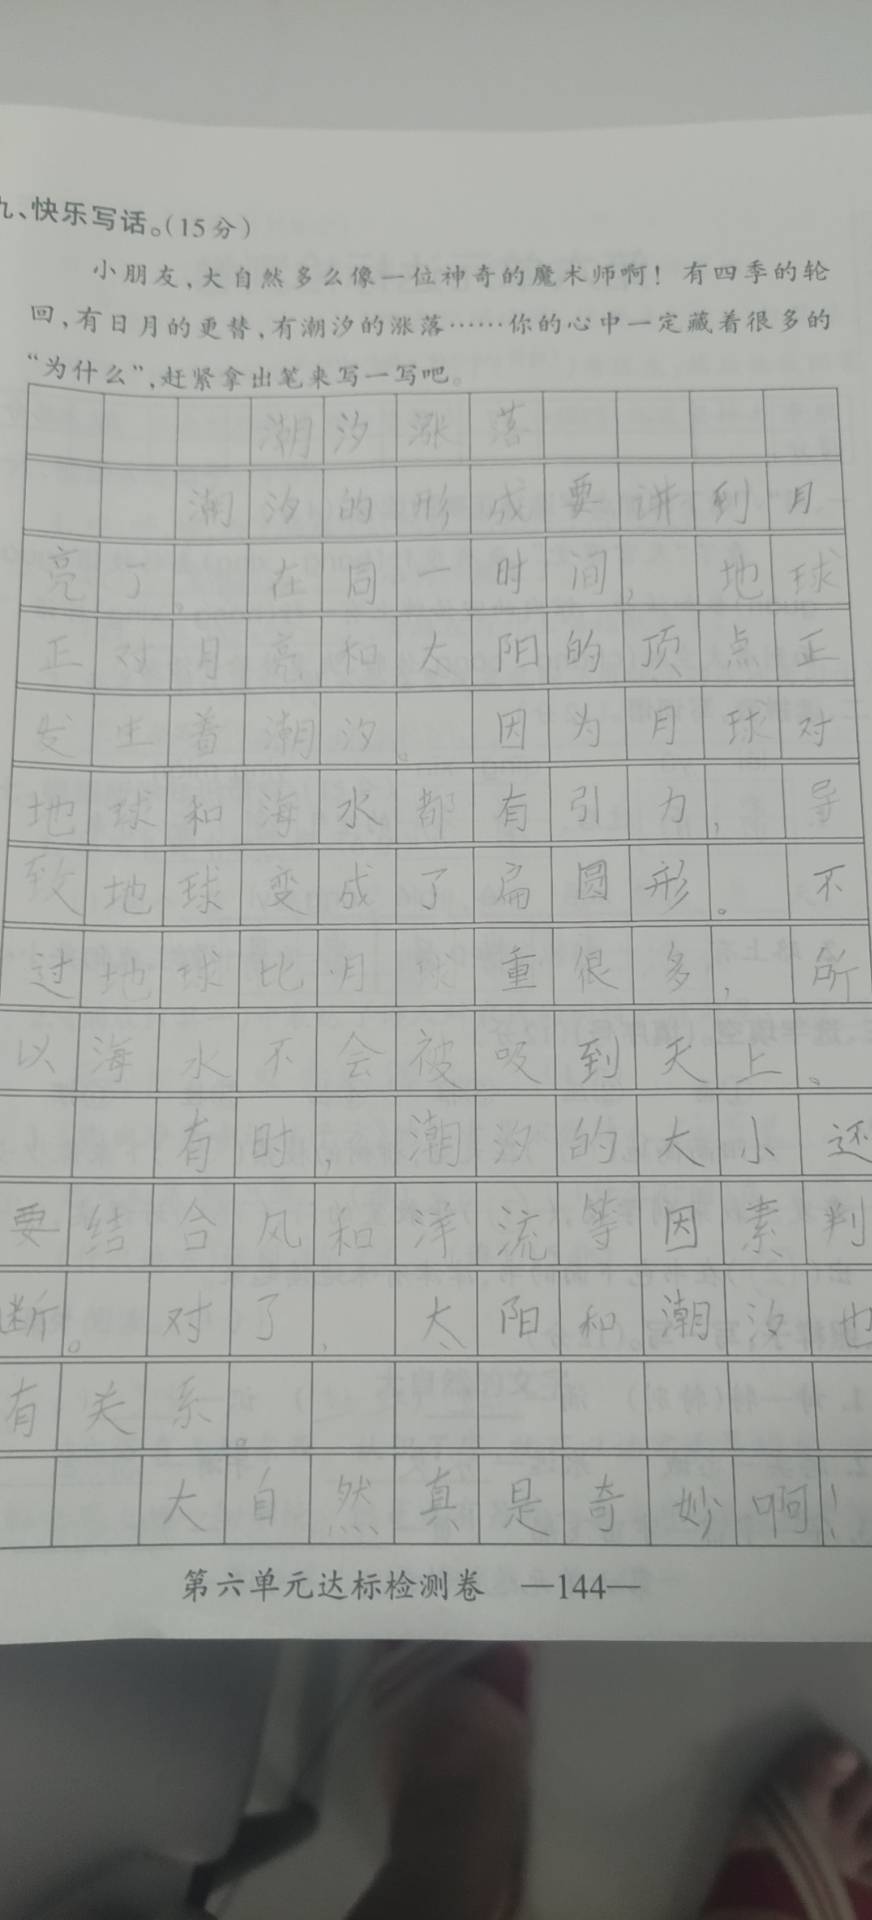 九、快乐写话。(15分)
小朋友,大自然多么像一位神奇的魔术师啊!有四季的轮
回,有日月的更替,有潮汐的涨落……你的心中一定藏着很多的
“为什么”,赶紧拿出笔来写一写吧。
潮汐涨落
潮汐的形成要讲到月
亮了 在同一时间,地球
正对月亮和太阳的顶点正
发生着潮汐。因为月球对
地球和海水都有引力,导
致地球变成了扁圆形。不
过地球比月球重很多,所
以海水不会被吸到天上。
有时,潮汐的大小还
要结合风和洋流等因素判
断。对了,太阳和潮汐也
有关系
大自然真是奇妙啊!
第六单元达标检测卷 —144—